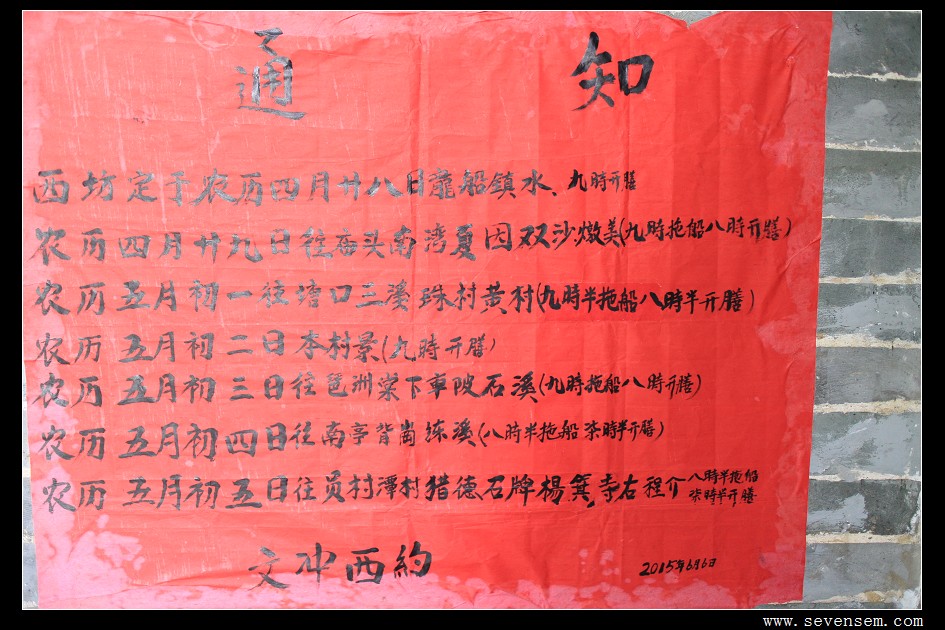 通知
西坊定于农历四月廿八日龍船鎮水、九時开膳
农历四月廿九日往庙头南湾夏因双沙燉美(九時拖船八時开膳)
农历五月初一往塘口三溪珠村黄村(九時半拖船八時半开膳)
农历五月初二日本村景(九時开膳)
农历五月初三日往琶洲棠下車陂石溪(九時拖船八時开膳)
农历五月初四日往南亭背崗练溪(八時半拖船柒時半开膳)
农历五月初五日往员村潭村猎德石牌楊箕寺右程介八時半拖船
柒時半开膳
文冲西約
2015年6月6日
www.sevensem.com